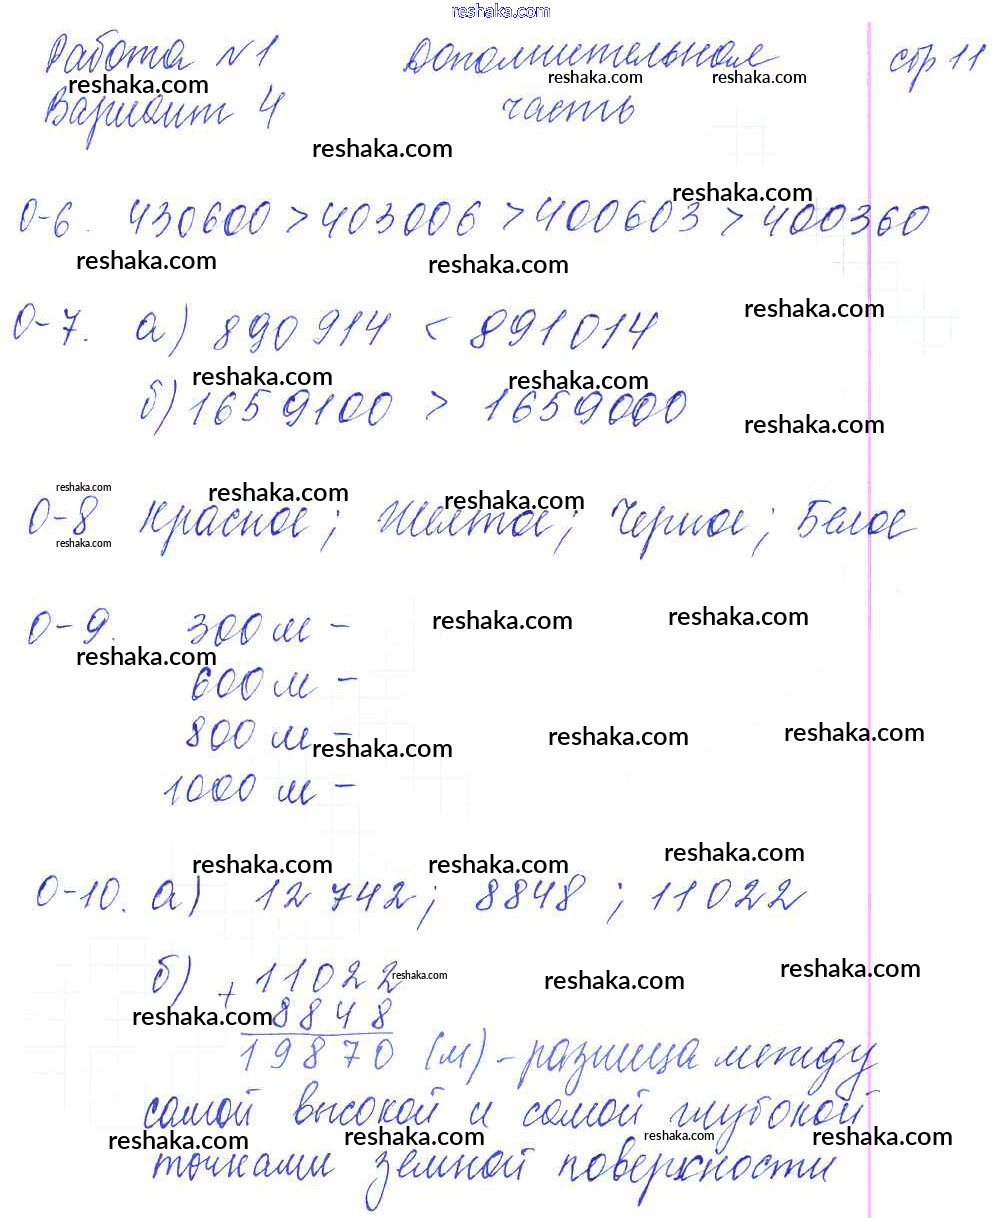 reshaka.com
Работа №1 Дополнительная стр 11
reshaka.com reshaka.com reshaka.com
Вариант 4 часть
reshaka.com
reshaka.com
О-6. 430600 > 403006 > 400603 > 400360
reshaka.com reshaka.com
reshaka.com
О-7. а) 890914 < 891014
reshaka.com reshaka.com
б) 1659100 > 1659000
reshaka.com
reshaka.com reshaka.com reshaka.com
О-8 Красное; Желтое; Черное; Белое
reshaka.com
reshaka.com reshaka.com
О-9. 300 м -
reshaka.com
600 м -
800 м -
reshaka.com reshaka.com reshaka.com
1000 м -
reshaka.com reshaka.com reshaka.com
О-10. а) 12 742; 8848; 11022
б) + 11022
reshaka.com reshaka.com reshaka.com
8848
reshaka.com
19870 (м) - разница между
самой высокой и самой глубокой
reshaka.com reshaka.com reshaka.com reshaka.com
точками земной поверхности